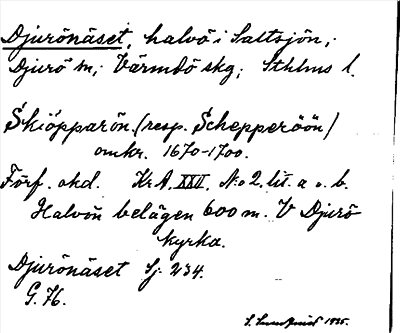 Djurönäset, halvö i Saltsjön,
Djurö sn; Värmdö skg; Sthlms l.
Skiöpparön (resp. Schepperöön)
omkr. 1670-1700.
Förf. okd. KrA. XXV. No 2. lit. a o. b.
Halvön belägen 600 m. V Djurö
kyrka.
Djurönäset Sj. 234.
G. 76.
S. 1935.